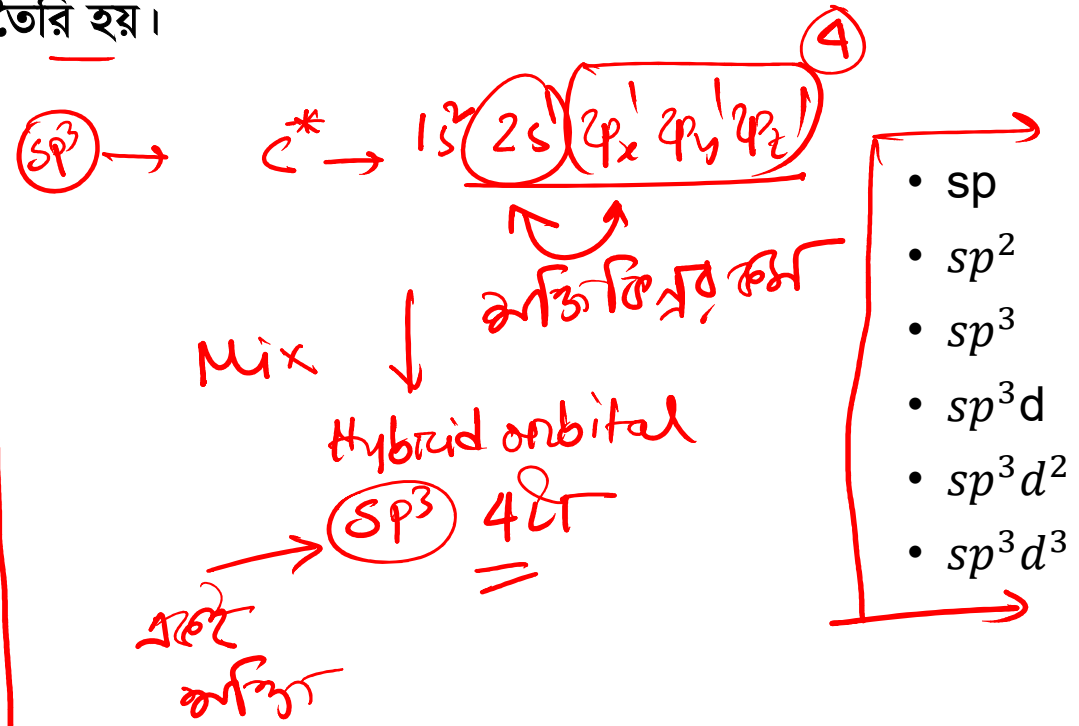 তৈরি হয়।
4
sp³ → C* → 1s² 2s¹ 2pₓ¹ 2pᵧ¹ 2p_z¹
শক্তি কিন্তু কম
Mix
Hybrid orbital
sp³ 4টা
একই
শক্তির
• sp
• sp²
• sp³
• sp³d
• sp³d²
• sp³d³